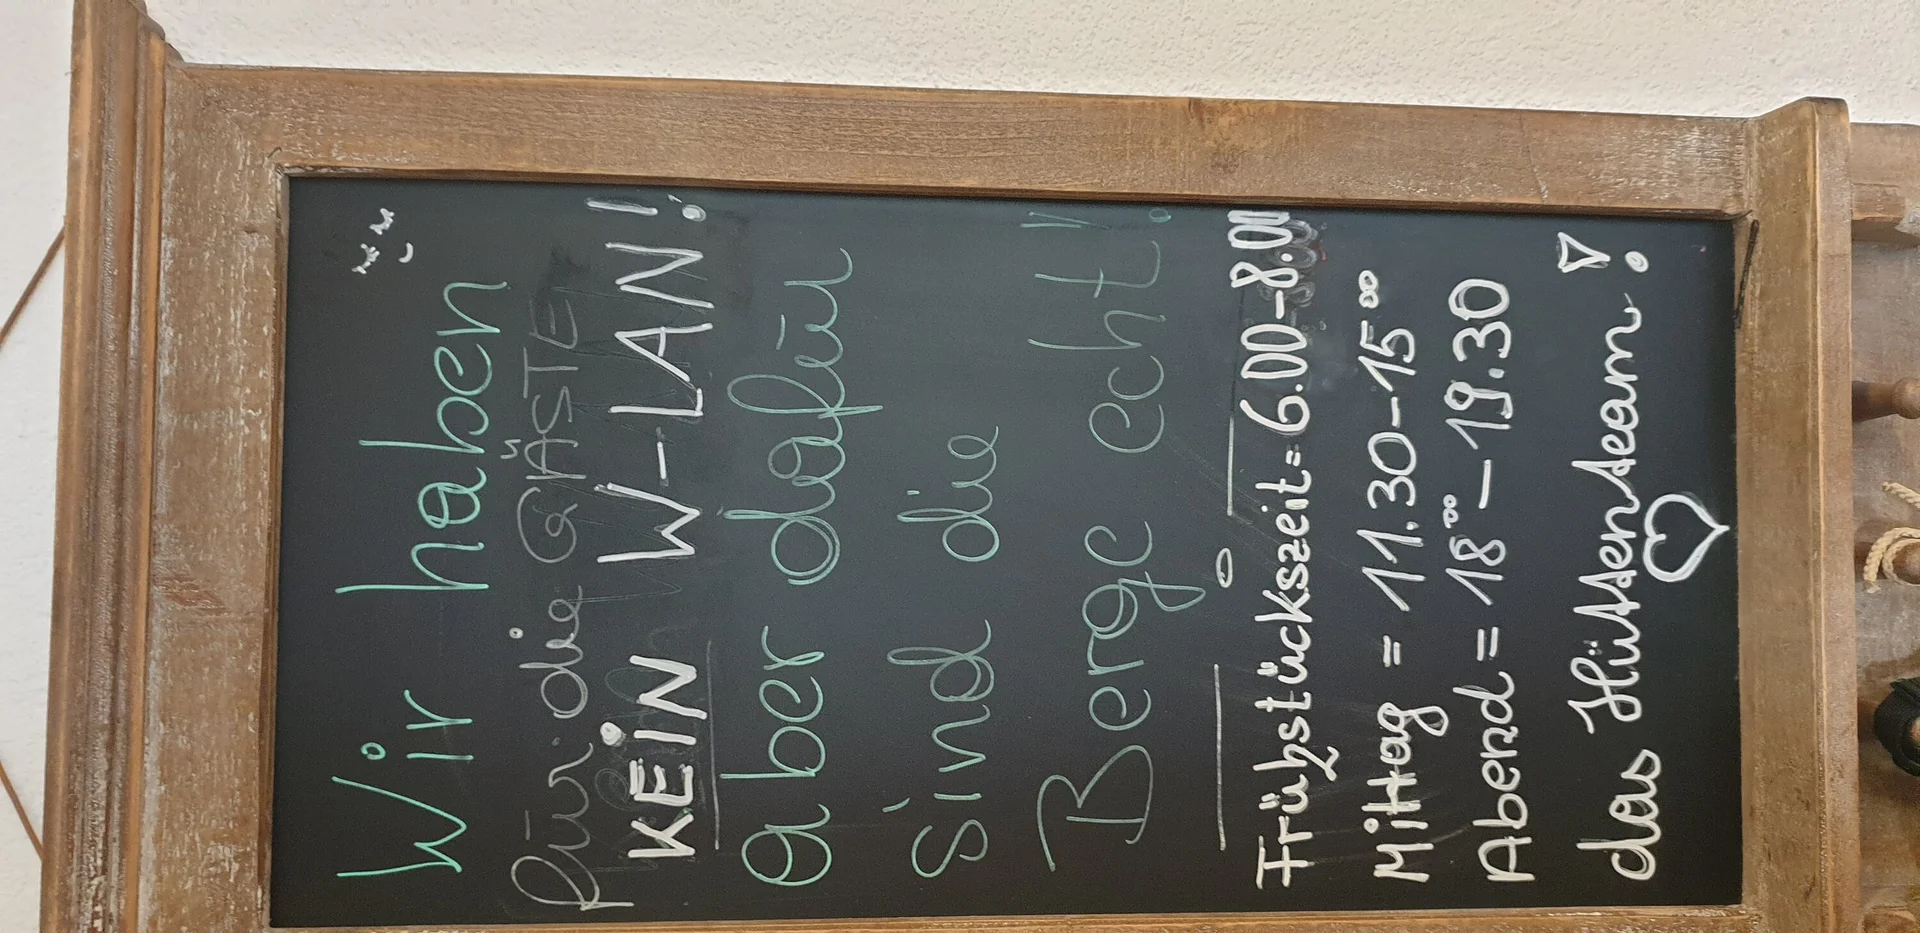 Wir haben
für die GÄSTE
KEiN W-LAN!
aber dafür
sind die
Berge echt!
Frühstückszeit = 6.00-8.00
Mittag = 11.30-15°°
Abend = 18°° - 19.30
das Hüttenteam!